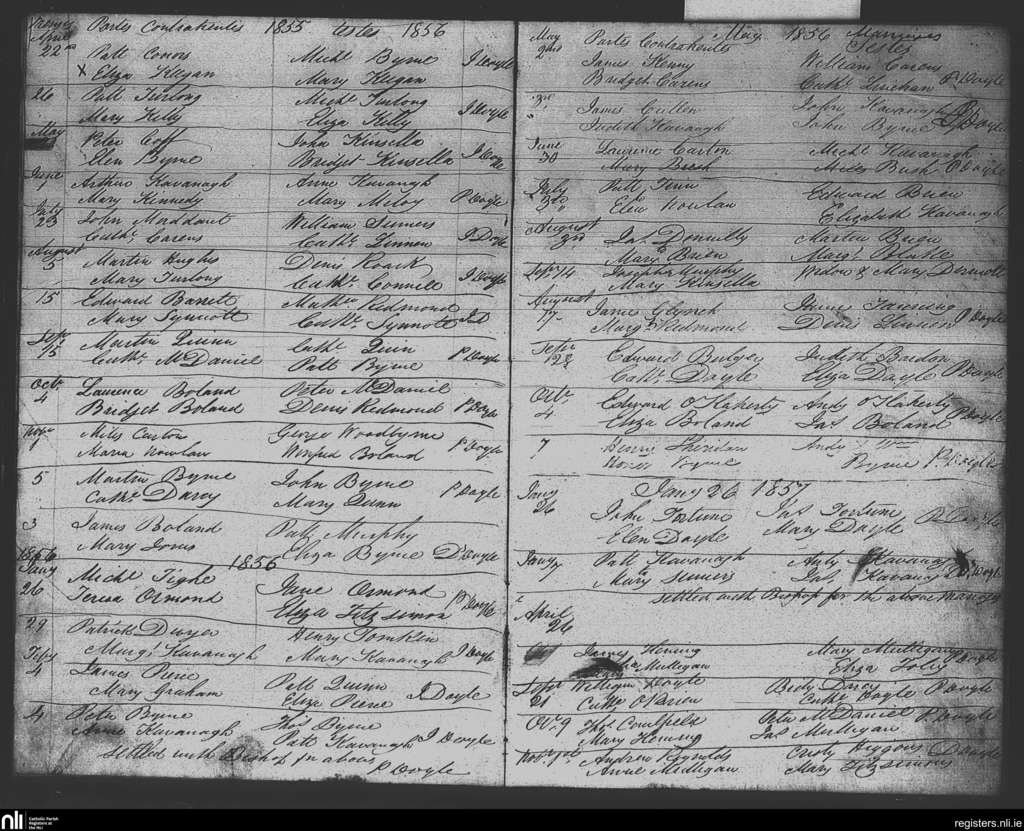 Partes Contrahentes 1855 Testes 1856
April
22nd Patt Conors Michl Byrne J Doyle
x Eliza Keegan Mary Keegan
26 Patt Furlong Michl Furlong J Doyle
Mary Kelly Eliza Kelly
May Peter Goff John Kinsella J Doyle
Elen Byrne Bridget Kinsella
June
1 Arthur Kavanagh Anne Kavanagh
Mary Kennedy Mary Meloy P Doyle
July
23 John Maddant William Sumers
Cathe Carens Cathe Linnon J Doyle
August
5 Martin Hughes Denis Roark
Mary Furlong Cathe Connell J Doyle
15 Edward Barrett Redmond
Mary Synnott Cathe Synnott J D
Sepr
15 Martin Quinn Cathe Quin
Cathe McDaniel Patt Byrne P Doyle
Octr
4 Laurence Boland Peter McDaniel
Bridget Boland Denis Redmond P Doyle
Novr
Miles Carton George Woodbyrne
Maria Nowlan Winfred Boland P Doyle
5 Martin Byrne John Byrne
Cathe Darcy Mary Quinn P Doyle
3 James Boland Patt Murphy
Mary Jones Eliza Byrne D Doyle
1856
Jany 1856
26 Michl Tighe Jane Ormond
Teresa Ormond Eliza Fitzsimon P Doyle
29 Patrick Dwyer Henry Tomkin
Margt Kavanagh Mary Kavanagh J Doyle
Feby
4 James Pierce Patt Quinn
Mary Graham Eliza Pierce J Doyle
4 Peter Byrne Thos Byrne
Anne Kavanagh Patt Kavanagh J Doyle
Settled with Bishop for above
P Doyle
May 1856 Marriages
May Partes Contrahentes Testes
2nd James Kenny William Carens
Bridget Carens Cathe Linehan P Doyle
3rd James Cullen John Kavanagh
Judith Kavanagh John Byrne P Doyle
June
30 Laurence Carton Michl Kavanagh
Mary Bush Miles Bush P Doyle
July
3rd Patt Finn Edward Brien
Elen Nowlan Elizabeth Kavanagh
August
3rd Jas Donnelly Martin Brien
Mary Brien Margt
Sepr 14 Murphy & Mary Dermott
Mary Kinsella
August
17 James Glynch James
Margt Redmond Denis Lennon P Doyle
Sepr
128 Edward Budger Judith Bardon
Cathe Doyle Eliza Doyle P Doyle
Octr
4 Edward O'Flaherty Andy O'Flaherty P Doyle
Eliza Boland Jas Boland
7 Henry Sheridan Andy
Byrne Byrne P Doyle
Jany 26 1857
Jany
26 John Fortune Jas Fortune
Elen Doyle Mary Doyle P Doyle
Jany Patt Kavanagh Andy Kavanagh
Mary Sumers Jas Kavanagh P Doyle
settled with Bishop for the above
April
26
James Hening Mary Mulligan
Mulligan Eliza Foley Doyle
Sepr William Doyle Becky Darcy
21 Cathe O'Brien Cathe Doyle P Doyle
Octr 9 Thos Peter McDaniel P Doyle
Mary Hening Jas Mulligan
Novr 1st Andrew Reynolds Cristy Higgons P Doyle
Anne Mulligan Mary Fitzsimons
nli Catholic Parish Registers at the NLI
registers.nli.ie